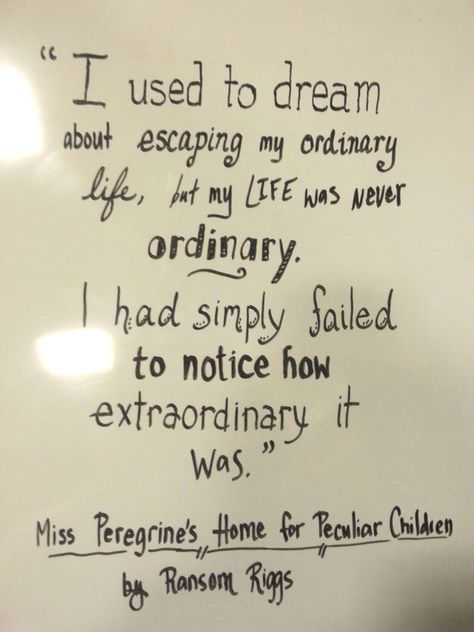 “I used to dream
about escaping my ordinary
life, but my LIFE was never
ordinary.
I had simply failed
to notice how
extraordinary it
was.”
Miss Peregrine's Home for Peculiar Children
by Ransom Riggs